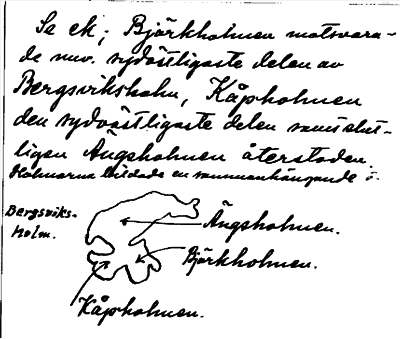 Se ek; Björkholmen motsvara-
de nuv. sydöstligaste delen av
Bergsviksholm, Kåpholmen
den sydvästligaste delen samt slut-
ligen Ängsholmen återstoden.
Holmarna bildade en sammanhängande ö.
Bergsviks-
holm.
Ängsholmen.
Björkholmen.
Kåpholmen.